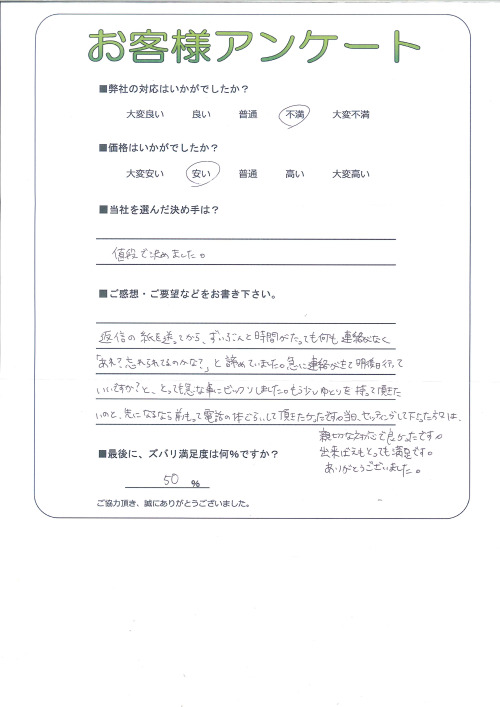 お客様アンケート
■弊社の対応はいかがでしたか？
大変良い 良い 普通 不満 大変不満
■価格はいかがでしたか？
大変安い 安い 普通 高い 大変高い
■当社を選んだ決め手は？
値段で決めました。
■ご感想・ご要望などをお書き下さい。
返信の紙を送ってから、ずいぶんと時間がたっても何も連絡がなく
「あれ？忘れられてるのかな？」と諦めていました。急に連絡がきて明後日行って
いいですか？と、とっても急な事にビックリしました。もう少しゆとりを持って頂きた
いのと、先になるなら前もって電話の1本ぐらいして頂きたかったです。当日、セッティングして下さった方は、
親切な対応で良かったです。
出来ばえもとっても満足です。
ありがとうございました。
■最後に、ズバリ満足度は何％ですか？
50 ％
ご協力頂き、誠にありがとうございました。